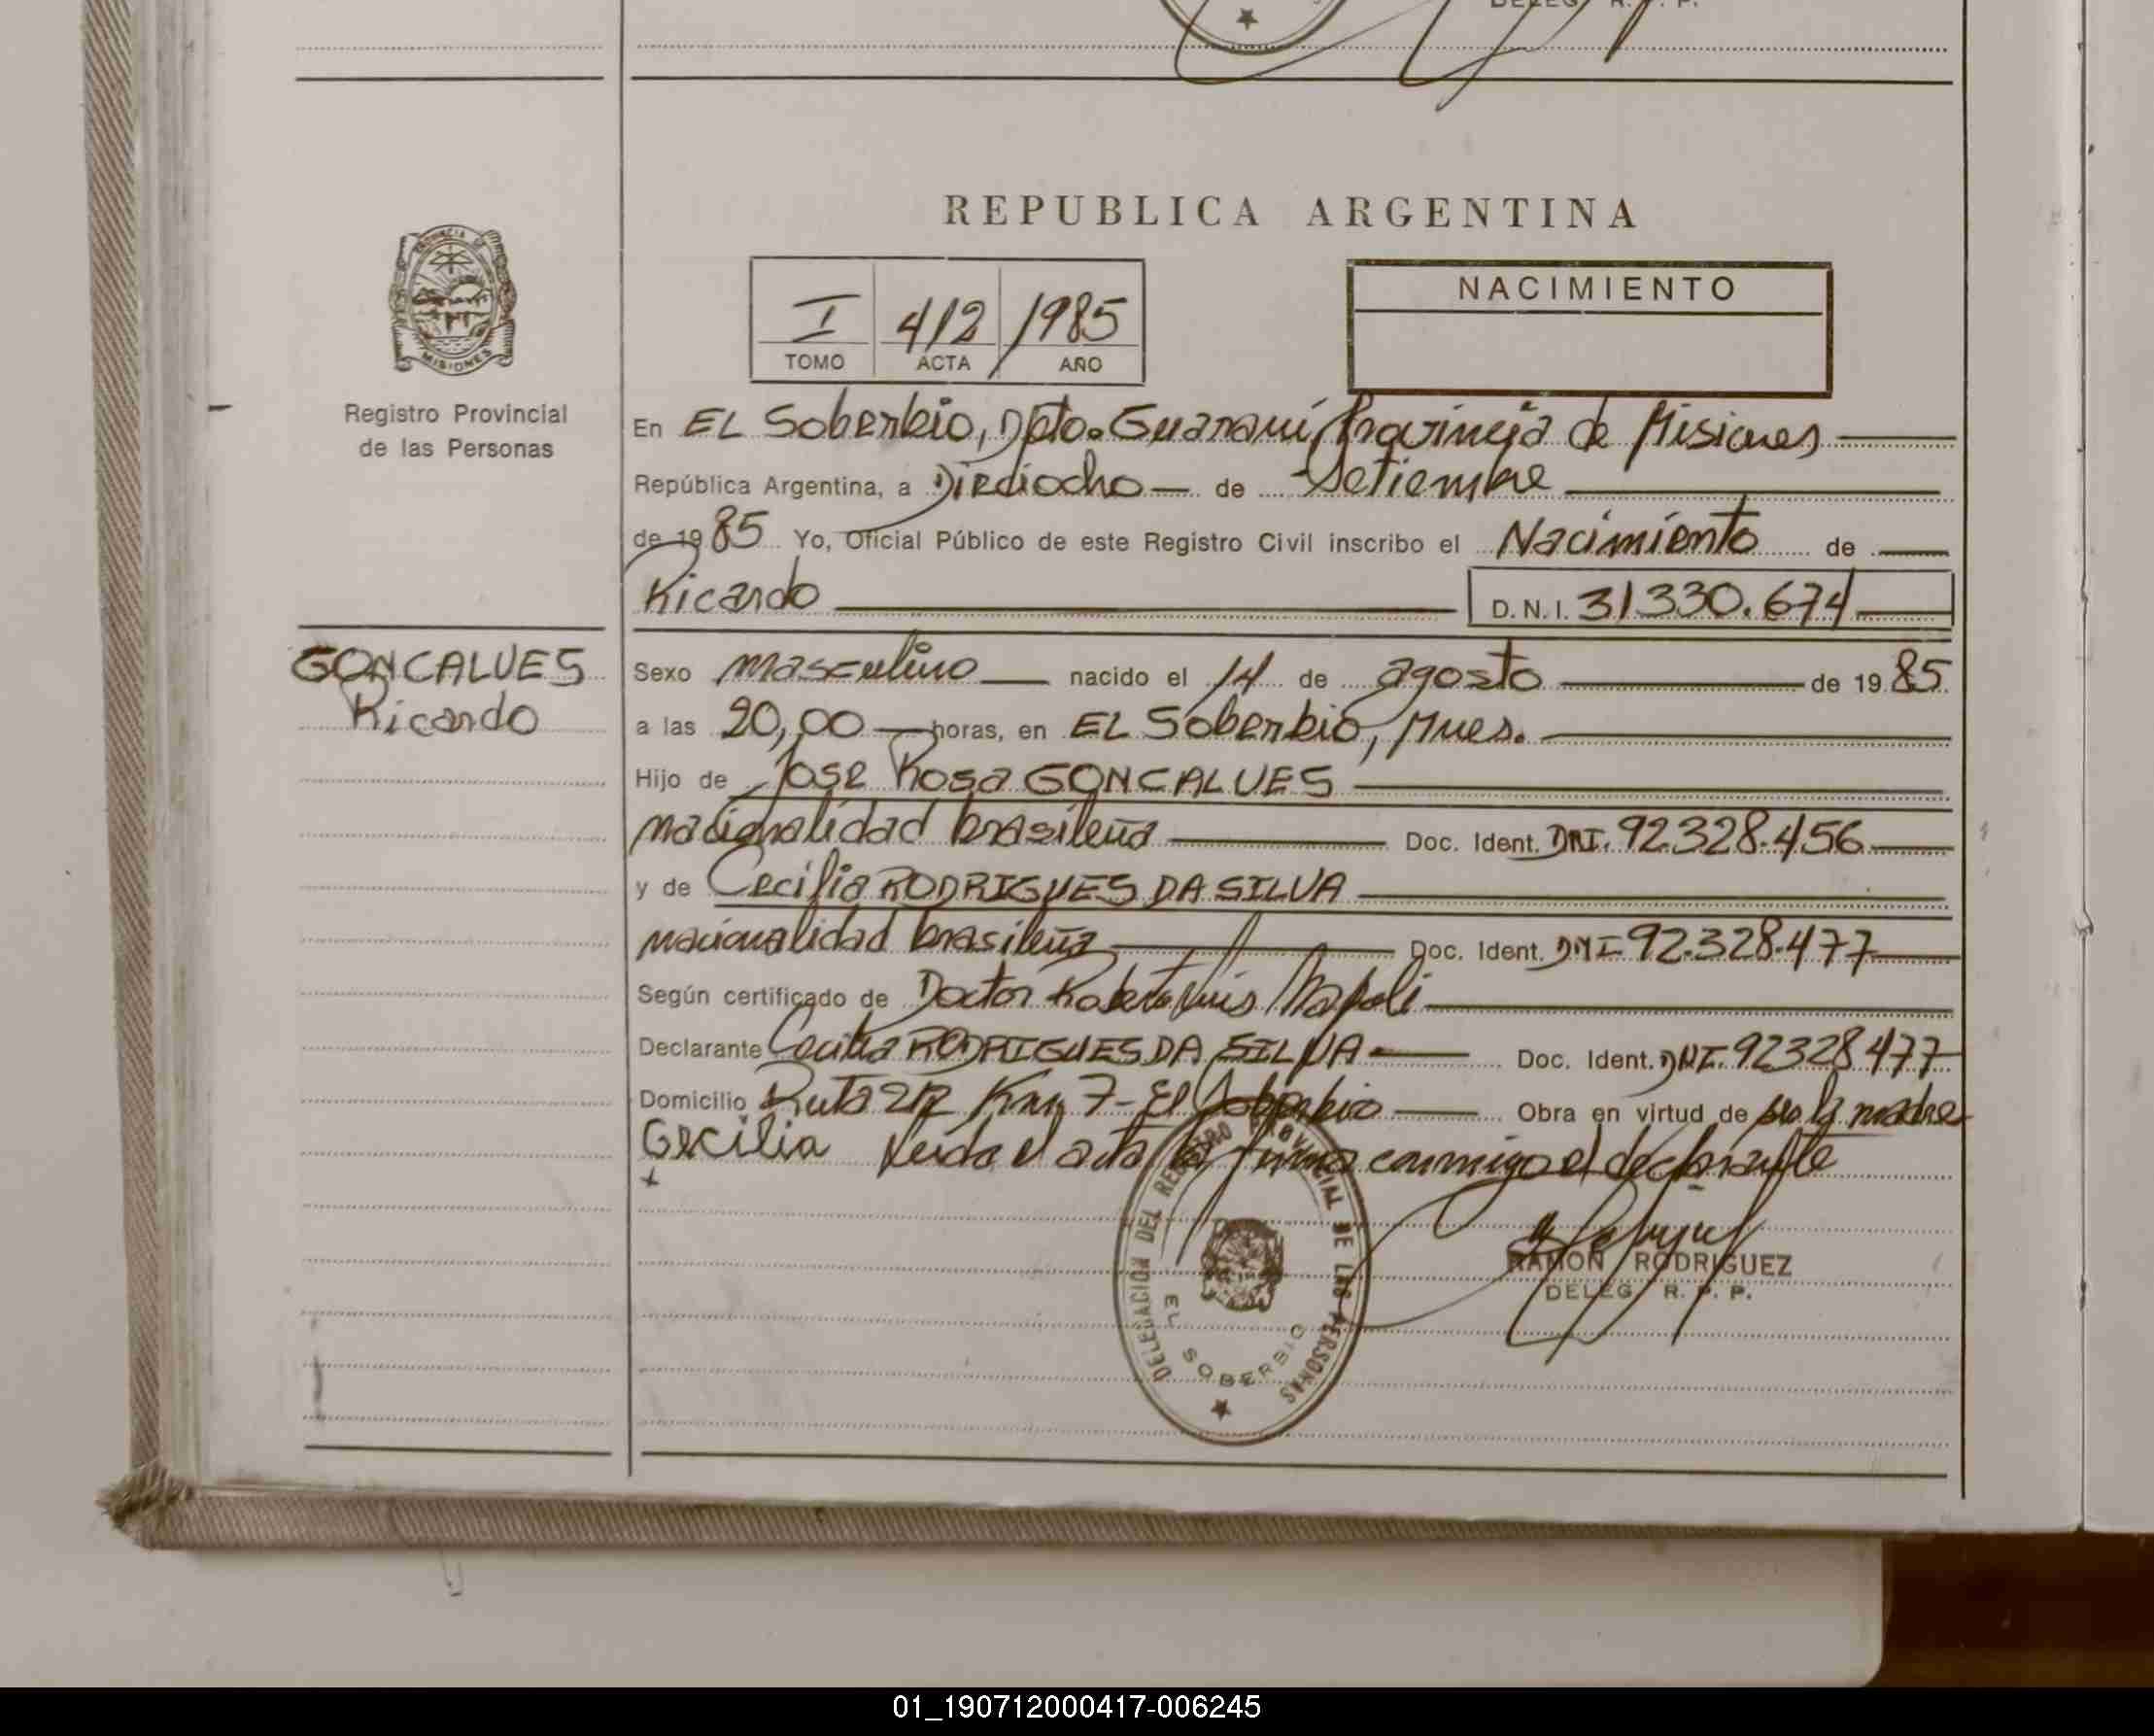 DELEG. R. P. P.
REPUBLICA ARGENTINA
PROVINCIA DE
MISIONES
Registro Provincial
de las Personas
I 412 1985
TOMO ACTA AÑO
NACIMIENTO
En EL Soberbio, Dpto. Guaraní, Provincia de Misiones
República Argentina, a Dieciocho de Setiembre
de 1985 Yo, Oficial Público de este Registro Civil inscribo el Nacimiento de
Ricardo D.N.I. 31330.674
GONCALVES
Ricardo
Sexo masculino nacido el 14 de agosto de 1985
a las 20,00 horas, en EL Soberbio, Mnes.
Hijo de Jose Rosa GONCALVES
nacionalidad brasileña Doc. Ident. DNI. 92.328.456
y de Cecilia RODRIGUES DA SILVA
nacionalidad brasileña Doc. Ident. DNI 92.328.477
Según certificado de Doctor Roberto Luis Napoli
Declarante Cecilia RODRIGUES DA SILVA Doc. Ident. DNI. 92328477
Domicilio Ruta 212 Km 7-El Soberbio Obra en virtud de ser la madre
Cecilia Leida el acta la firma conmigo el declarante
DELEGACION DEL REGISTRO PROVINCIAL DE LAS PERSONAS
EL SOBERBIO
RAMON RODRIGUEZ
DELEG. R. P. P.
01_190712000417-006245